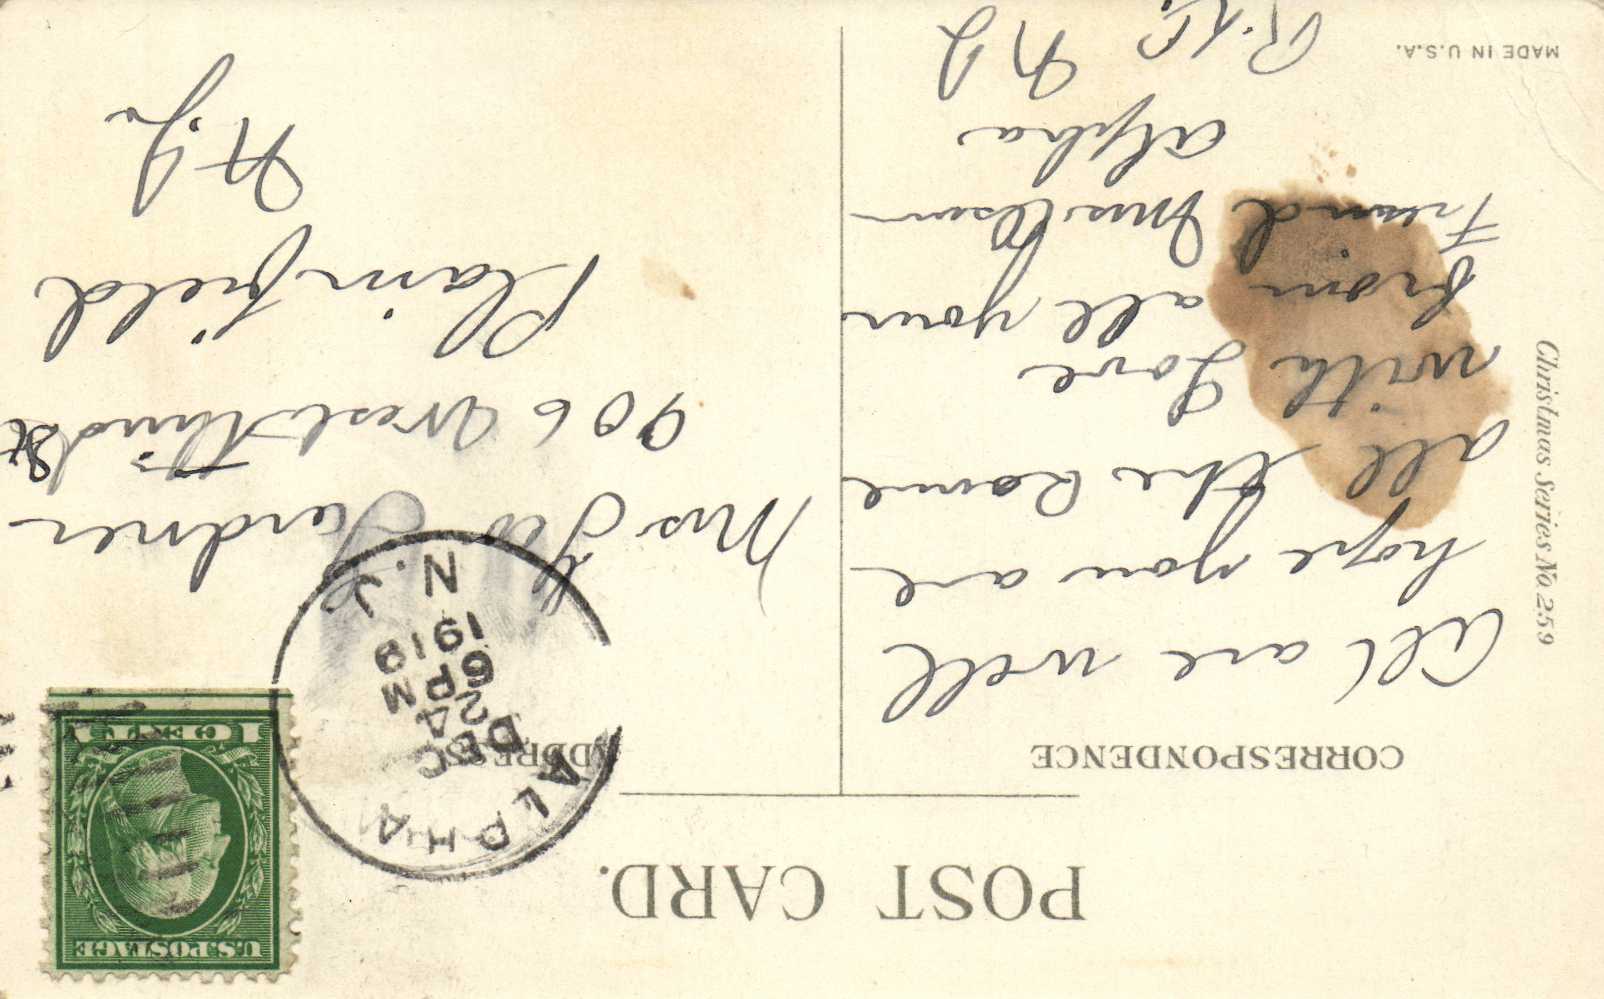 POST CARD.
CORRESPONDENCE
All are well
hope you are
all the same
with Love
from all your
Freind Mrs
Alpha
N J
Christmas Series No. 259
MADE IN U.S.A.
ADDRESS
Mrs Geo Gardner
906 West Third St
Plainfield
N.J.
ALPHA
DEC
24
6 PM
N.J.
U.S. POSTAGE
1 CENT 1